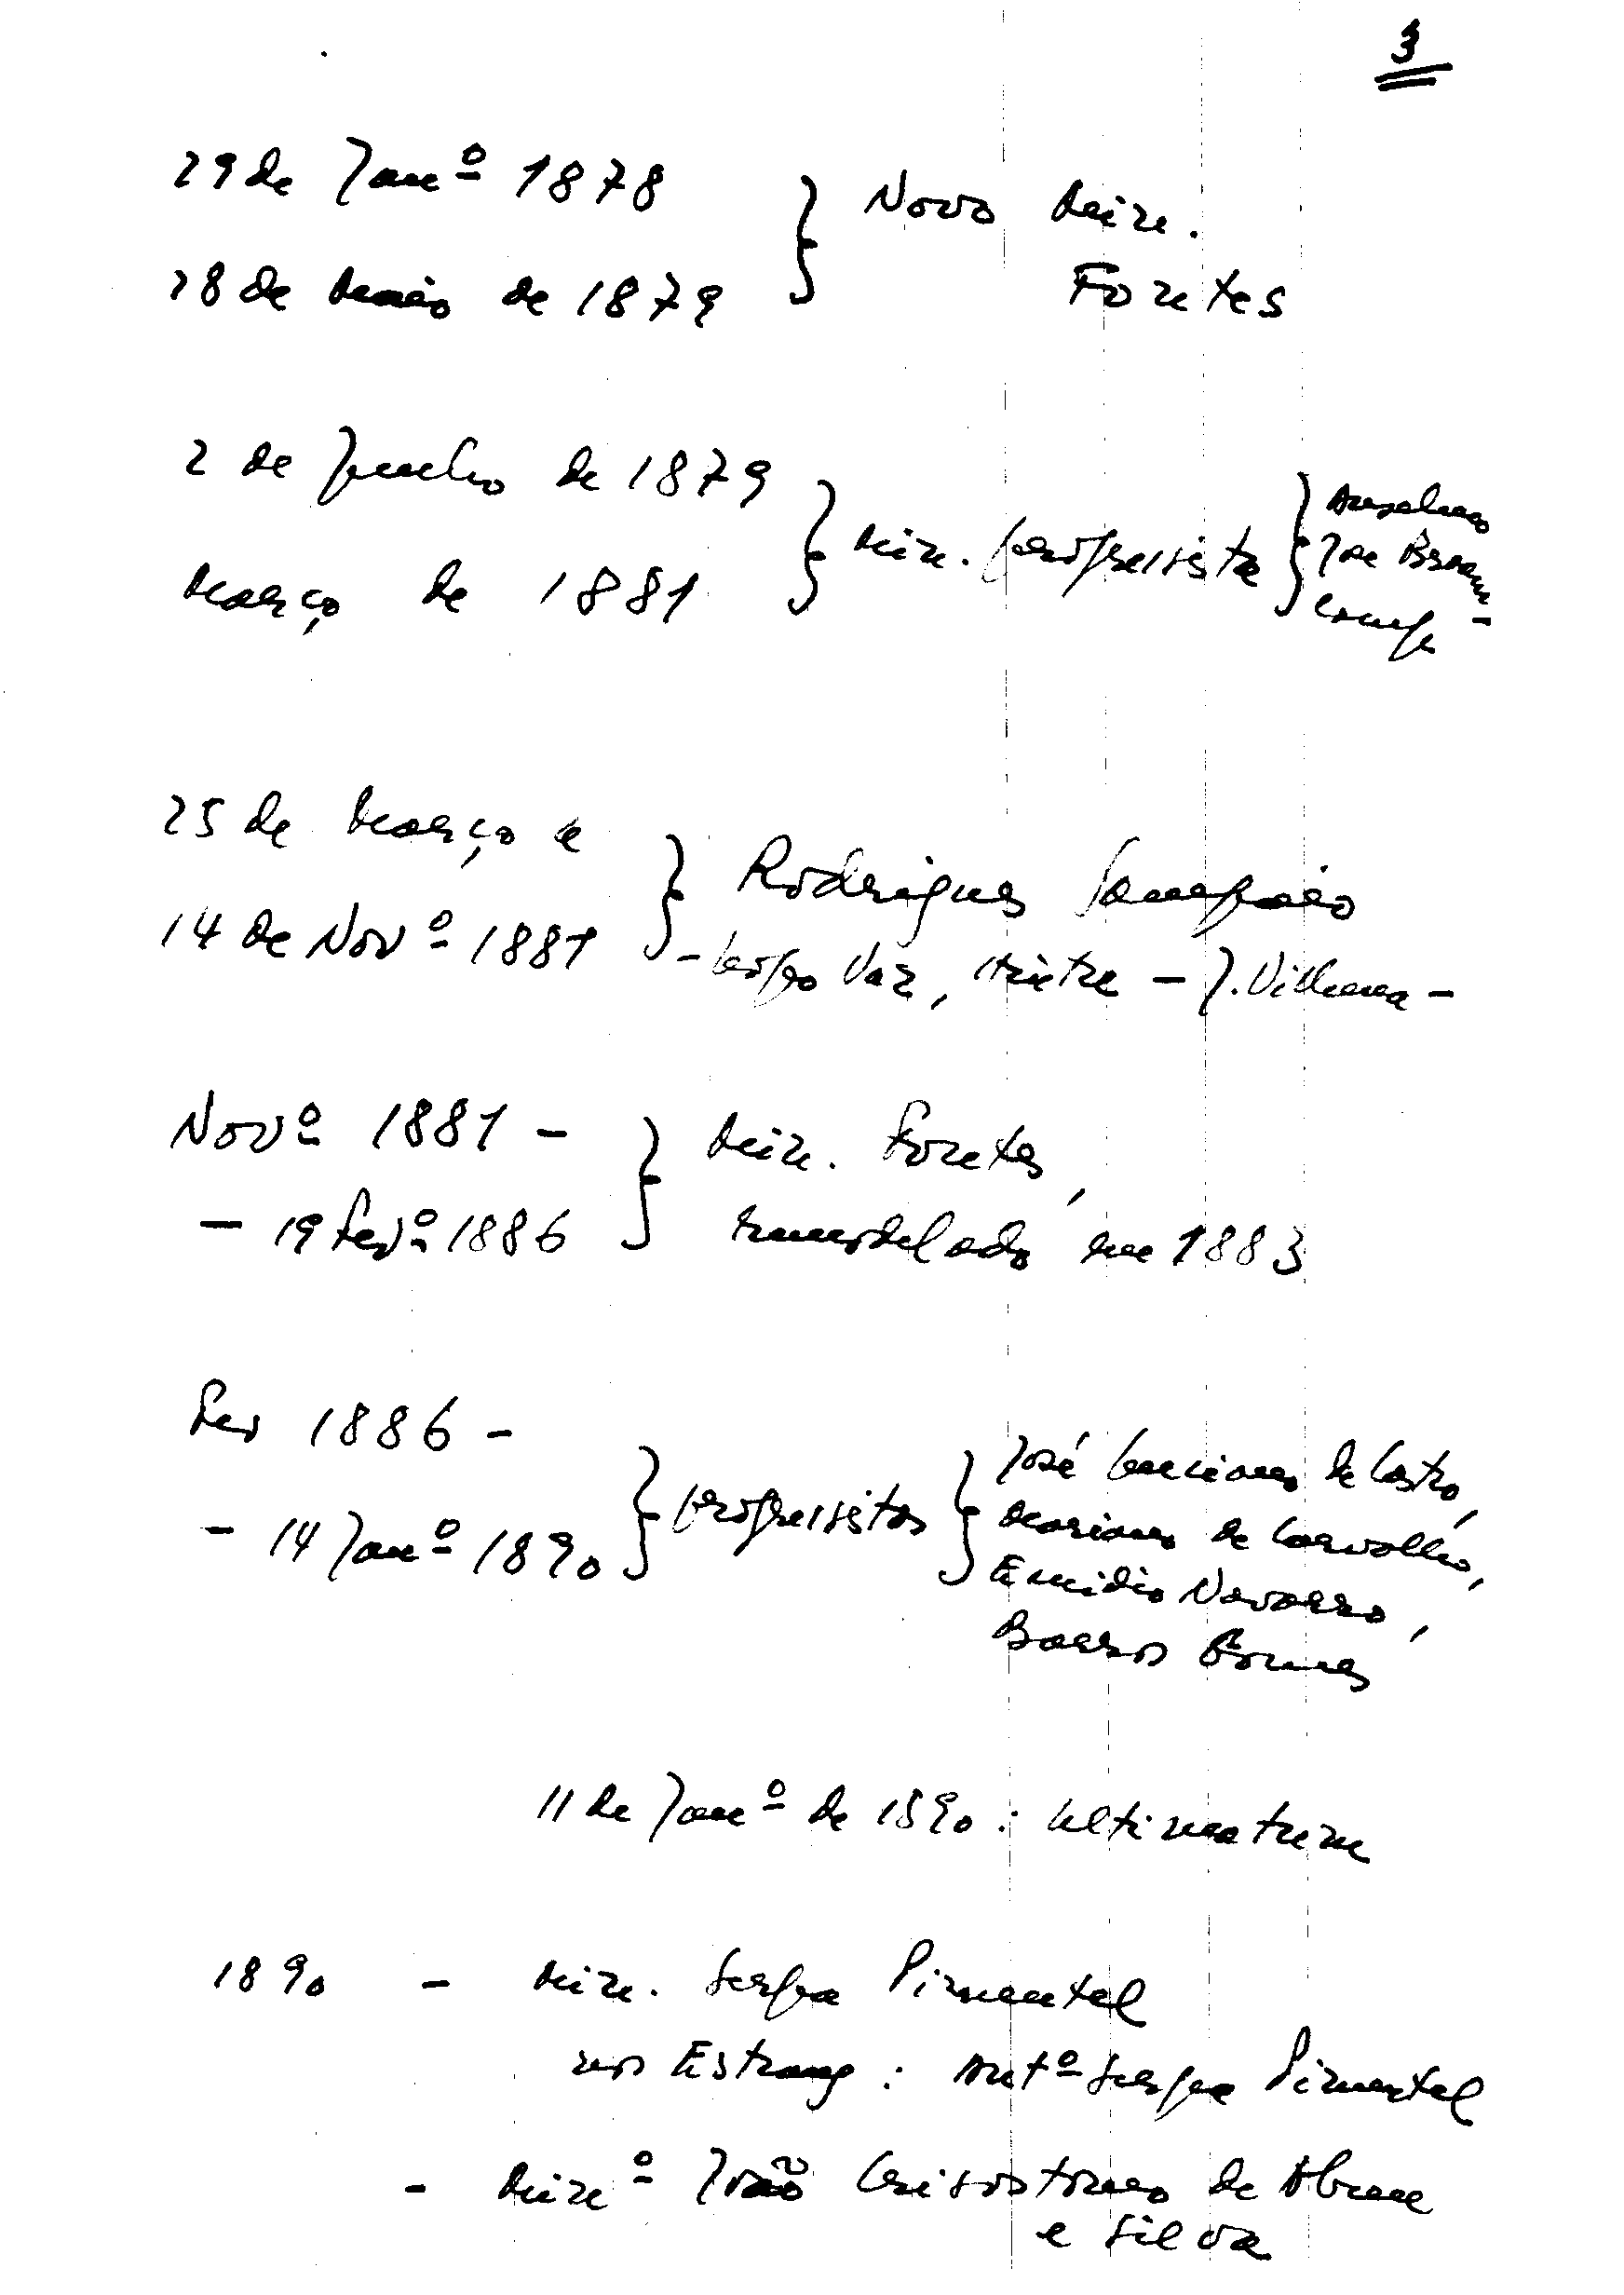 3
29 de Janº 1878
28 de Maio de 1879
} Novo Min.
Fontes
2 de Junho de 1879
Março de 1881
} Min. progressista
} Anselmo
José Braam-
camp -
25 de Março a
14 de Novº 1881
} Rodrigues Sampaio
- Lopo Vaz, Hintze - J. Vilhena -
Novº 1881 -
- 19 Fevº 1886
} Min. Fontes,
remodelado em 1883
Fev 1886 -
- 14 Janº 1890
} progressistas
} José Luciano de Castro,
Mariano de Carvalho,
Emidio Navarro,
Barros Gomes
11 de Janº de 1890 : Ultimatum
1890 - Min. Serpa Pimentel
nos Estrang : Antº Serpa Pimentel
- Minº João Crisostomo de Abreu
e Silva